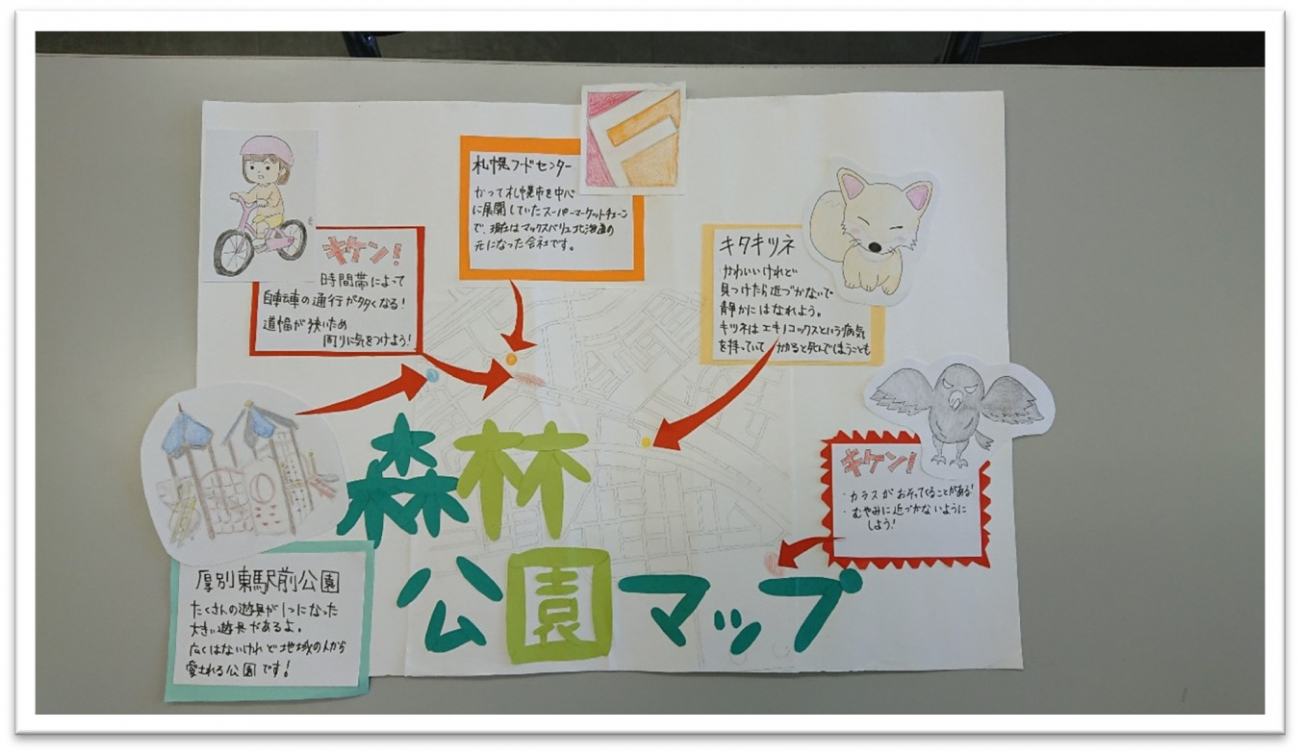 キケン!
時間帯によって
自転車の通行が多くなる!
道幅が狭いため
周りに気をつけよう!
札幌フードセンター
かつて札幌市を中心
に展開していたスーパーマーケットチェーン
で、現在はマックスバリュ北海道の
元になった会社です。
キタキツネ
かわいいけれど
見つけたら近づかないで
静かにはなれよう。
キツネはエキノコックスという病気
を持っていて かかると死んでしまうことも
キケン!
・カラスがおそってくることがある!
・むやみに近づかないように
しよう!
厚別東駅前公園
たくさんの遊具が1つになった
大きい遊具があるよ。
広くはないけれど地域の人から
愛される公園です!
森林
公園マップ